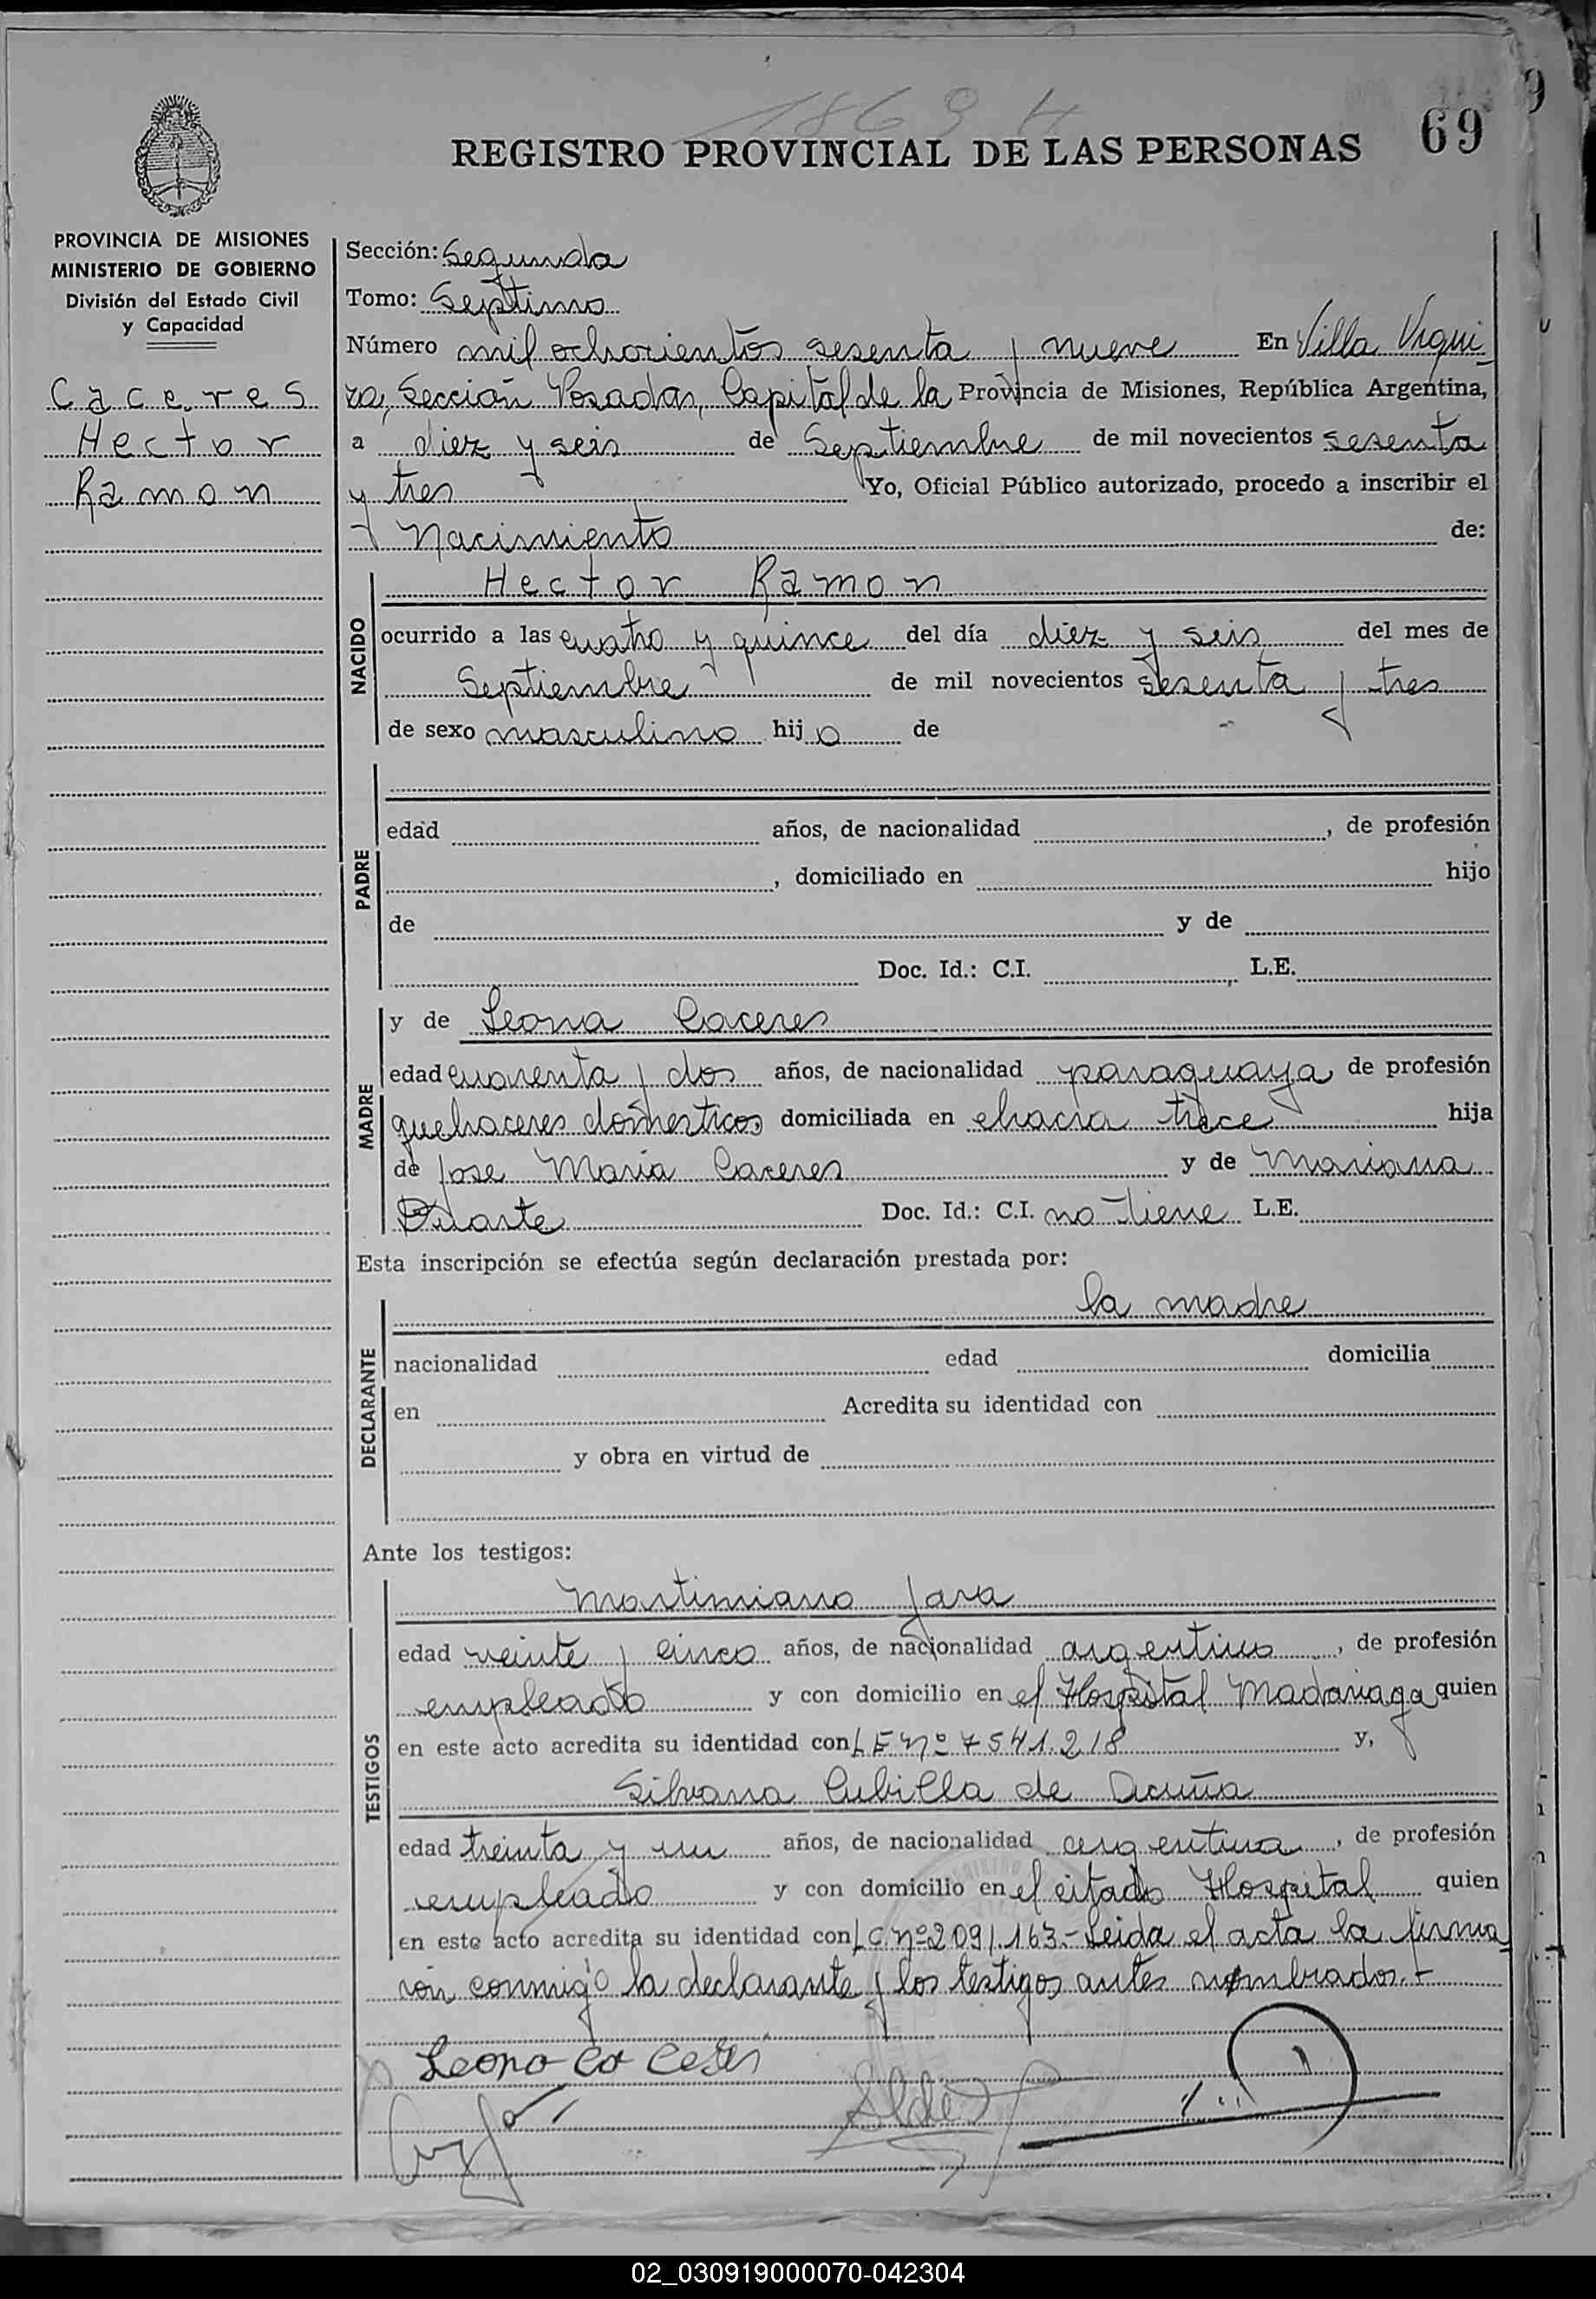 1869 H
REGISTRO PROVINCIAL DE LAS PERSONAS 69
PROVINCIA DE MISIONES
MINISTERIO DE GOBIERNO
División del Estado Civil
y Capacidad
Caceres
Hector
Ramon
Sección: Segunda
Tomo: Septimo
Número mil ochocientos sesenta y nueve En Villa Urqui
za, Sección Posadas, Capital de la Provincia de Misiones, República Argentina,
a diez y seis de Septiembre de mil novecientos sesenta
y tres Yo, Oficial Público autorizado, procedo a inscribir el
Nacimiento de:
NACIDO
Hector Ramon
ocurrido a las cuatro y quince del día diez y seis del mes de
Septiembre de mil novecientos sesenta y tres
de sexo masculino hijo de
PADRE
edad años, de nacionalidad , de profesión
, domiciliado en hijo
de y de
Doc. Id.: C.I. , L.E.
MADRE
y de Leona Caceres
edad cuarenta y dos años, de nacionalidad paraguaya de profesión
quehaceres domesticos domiciliada en chacra trece hija
de Jose Maria Caceres y de Mariana
Duarte Doc. Id.: C.I. no tiene L.E.
Esta inscripción se efectúa según declaración prestada por:
DECLARANTE
la madre
nacionalidad edad domicilia
en Acredita su identidad con
y obra en virtud de
Ante los testigos:
TESTIGOS
Martimiano Jara
edad veinte y cinco años, de nacionalidad argentino, de profesión
empleado y con domicilio en el Hospital Madariaga quien
en este acto acredita su identidad con L E Nº 7541.218 y,
Silvana Cubilla de Acuña
edad treinta y un años, de nacionalidad argentina, de profesión
empleado y con domicilio en el citado Hospital quien
en este acto acredita su identidad con L C. Nº 2091.163.- Leida el acta la firma
ron conmigo la declarante y los testigos antes nombrados.-
Leona Ca Ceres
02_030919000070-042304